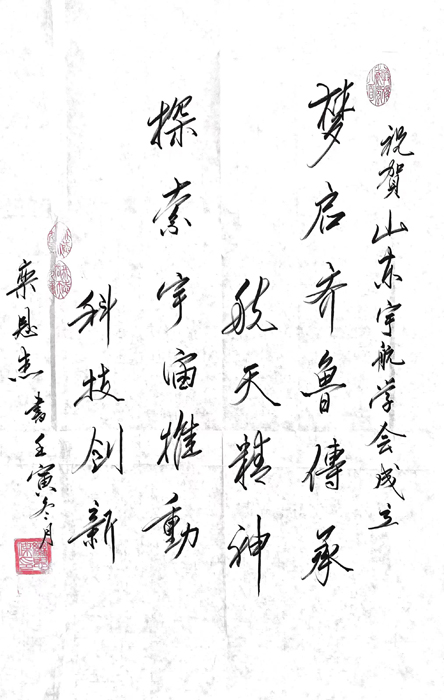 祝贺山东宇航学会成立
梦启齐鲁傳承
航天精神
探索宇宙推動
科技创新
栾恩杰书壬寅冬月